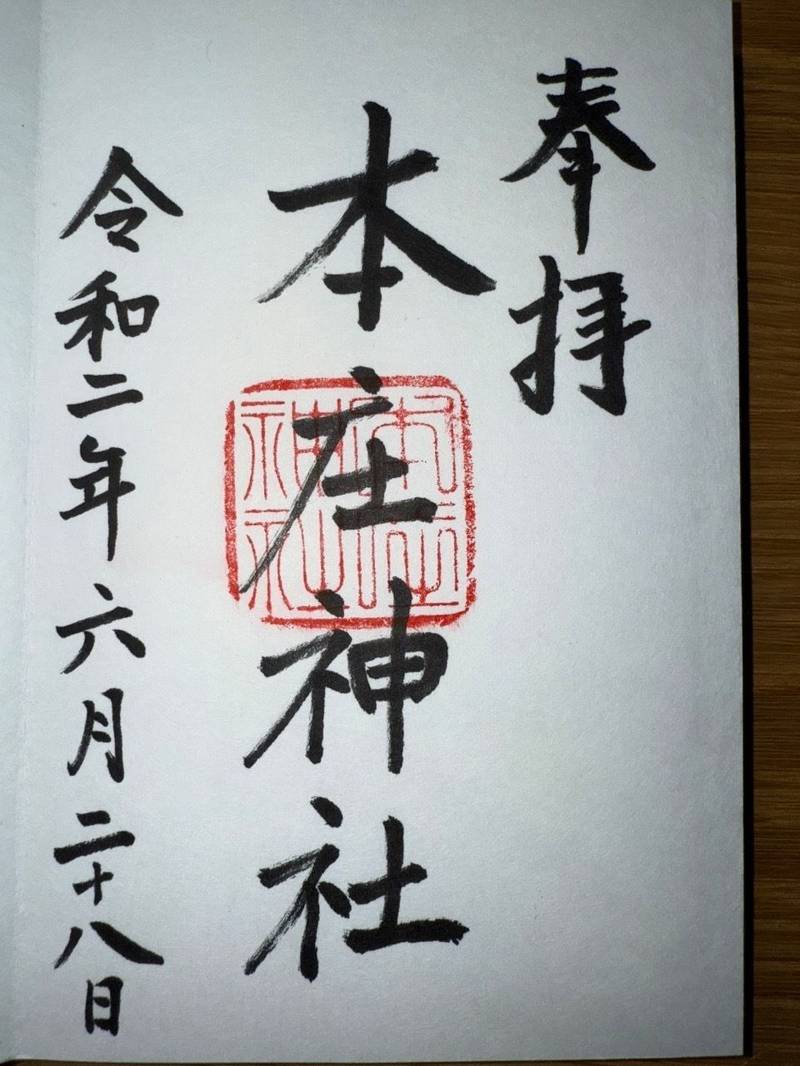 奉拝
本庄神社
本庄神社
令和二年六月二十八日